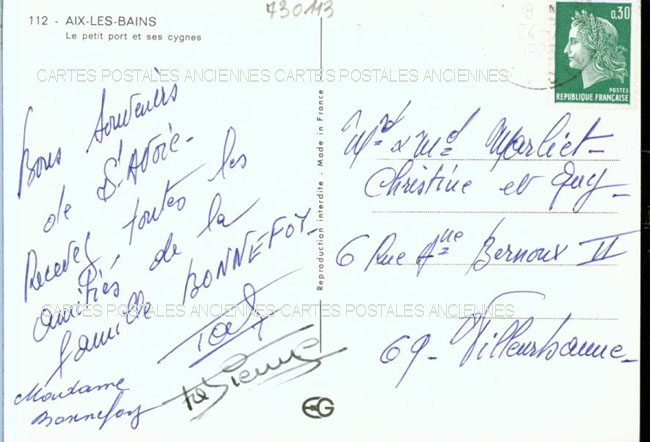 112 - AIX-LES-BAINS
Le petit port et ses cygnes
730113
0,30
POSTES
REPUBLIQUE FRANÇAISE
CARTES POSTALES ANCIENNES CARTES POSTALES ANCIENNES
Bons Souvenirs
de
Recevez toutes les
amitiés de la
famille BONNEFOY
Madame
Bonnefoy
Etienne
Reproduction interdite Made in France
Mr & Md Marliet
Christine et Guy
6 Rue Ane Bernoux II
69 - Villeurbanne
CARTES POSTALES ANCIENNES CARTES POSTALES ANCIENNES